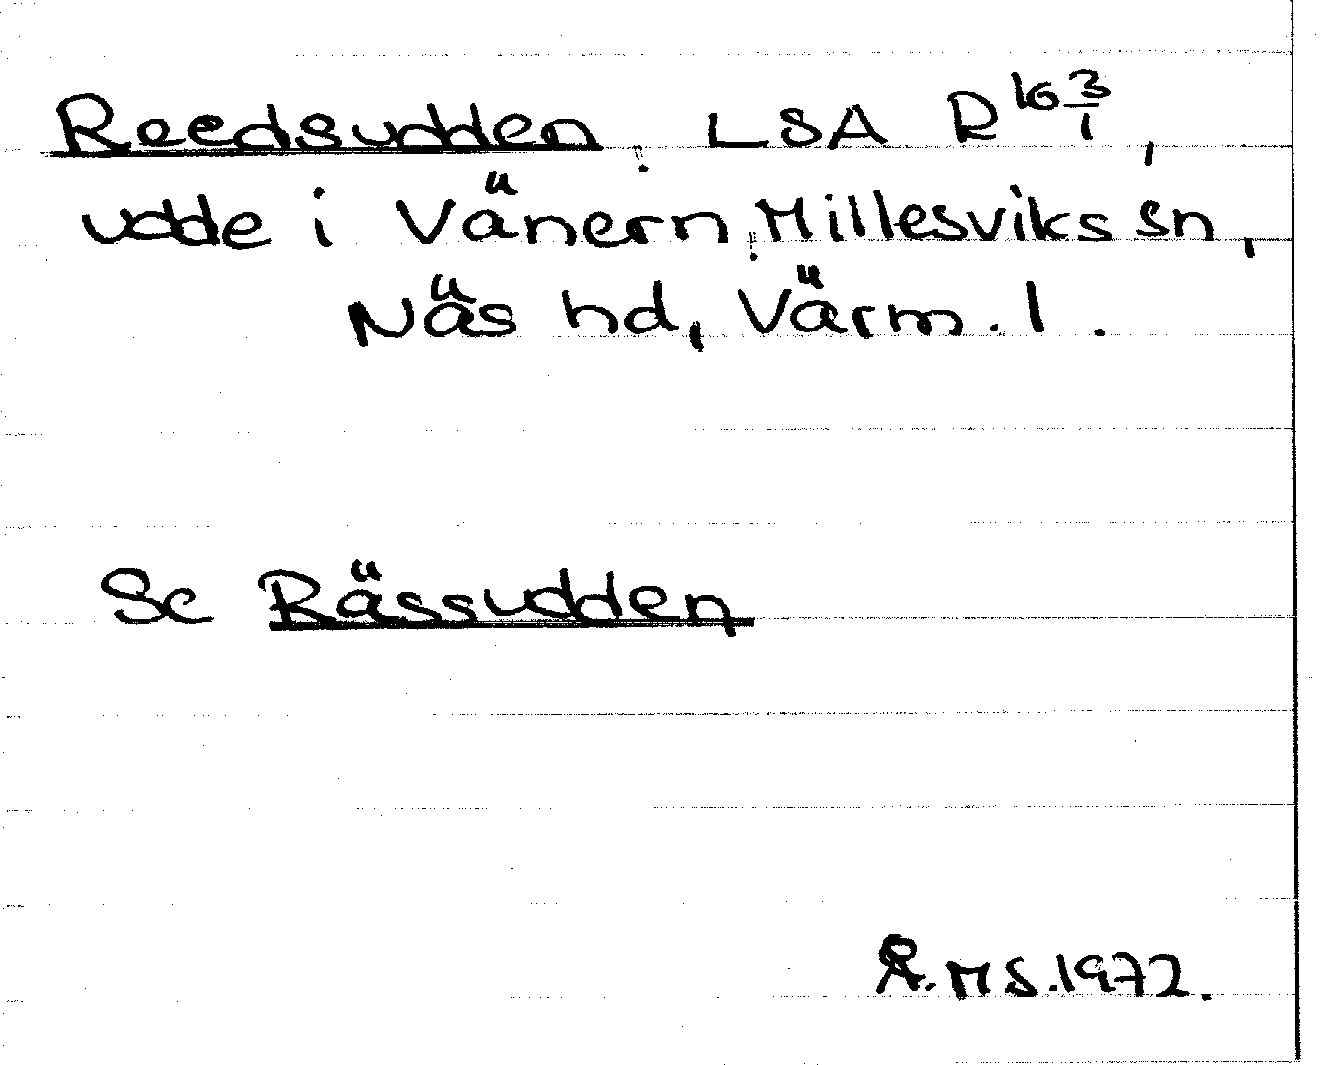 Reedsudden, LSA R 16 3/1,
udde i Vänern, Millesviks sn,
Näs hd, Värm. l.
Se Rässudden
Å.M S.1972.